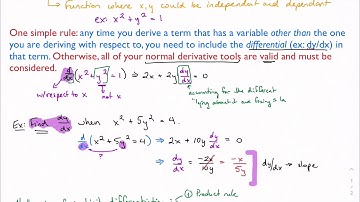 function where x, y could be independent and dependent
ex: x² + y² = 1
One simple rule: any time you derive a term that has a variable other than the one
you are deriving with respect to, you need to include the differential (ex: dy/dx) in
that term. Otherwise, all of your normal derivative tools are valid and must be
considered.
d/dx (x² + y² = 1) → 2x + 2y dy/dx = 0
w/respect to x not x
accounting for the different
Ex: Find dy/dx when x² + 5y² = 4.
d/dx (x² + 5y² = 4) → 2x + 10y dy/dx = 0
?
→ dy/dx = -2x/10y = -x/5y dy/dx → slope
① Product rule